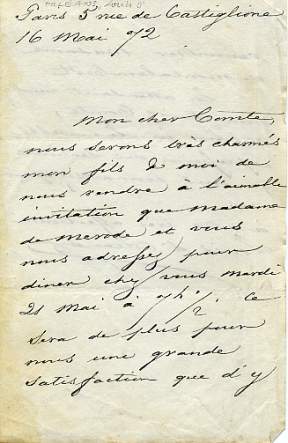 Paris 5 rue de Castiglione
16 Mai 72
Mon cher Comte,
nous serons très charmés
mon fils & moi de
nous rendre à l'aimable
invitation que madame
de Merode et vous
nous adressez pour
diner chez vous mardi
21 Mai à 7h 1/2. Ce
sera de plus pour
nous une grande
satisfaction que d'y